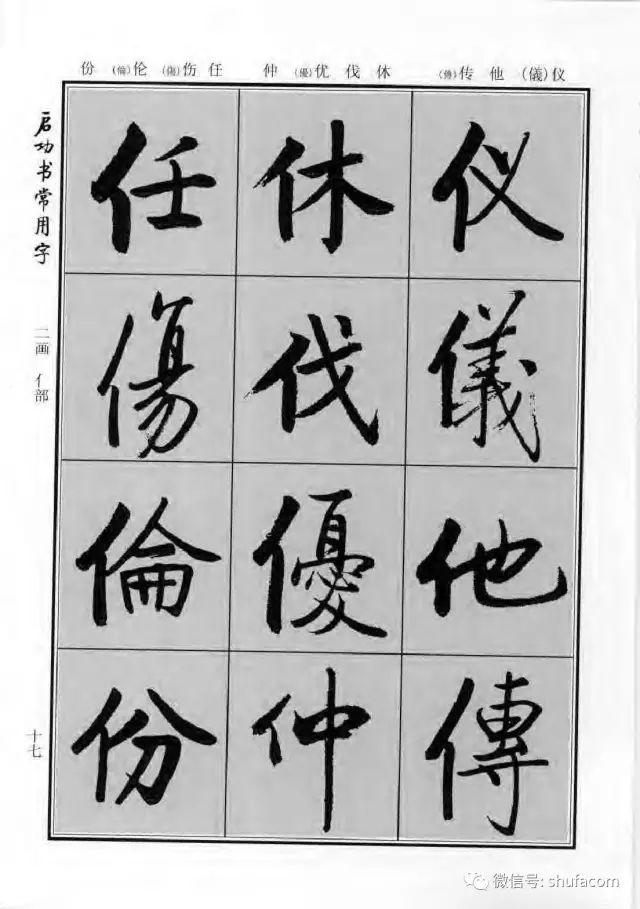 仪(儀) 他 传(傳) 休 伐 优(優) 仲 任 伤(傷) 伦(倫) 份
启功书常用字
二画 亻部
十七
仪
儀
他
傳
休
伐
優
仲
任
傷
倫
份
微信号: shufacom